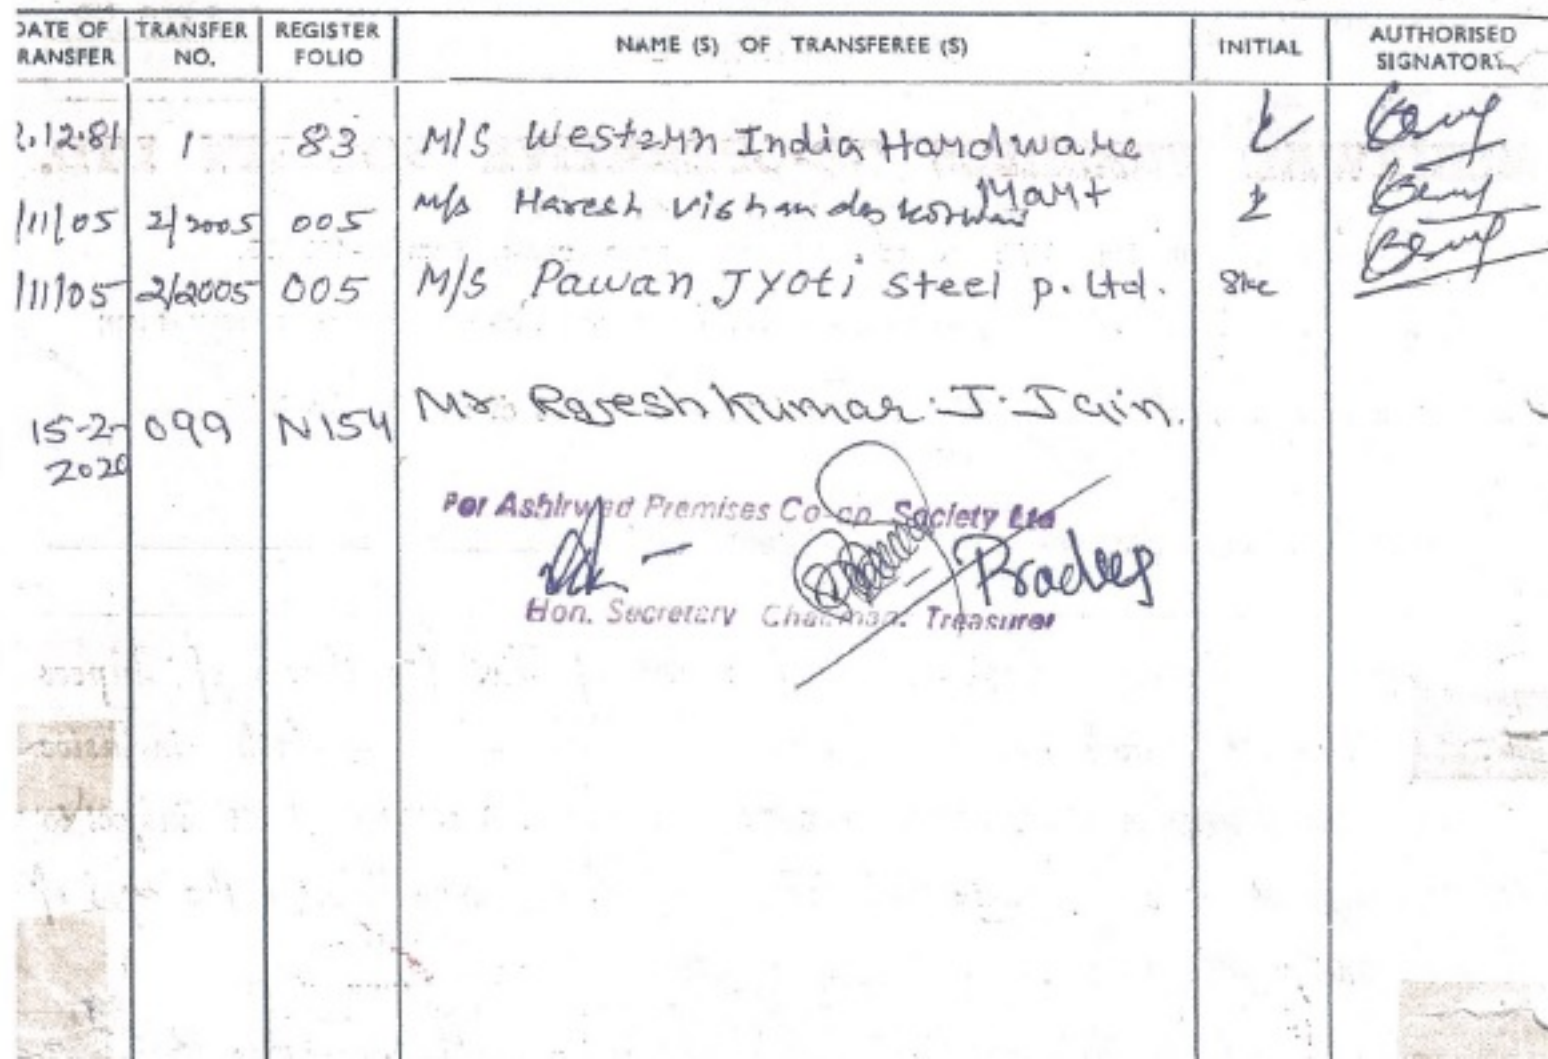 DATE OF TRANSFER NO. REGISTER FOLIO NAME (S) OF TRANSFEREE (S) INITIAL AUTHORISED SIGNATORY
RANSFER
.12.81 1 83 M/S Western India Hardware
Mart
/11/05 2/2005 005 M/s Haresh Vishandas
/11/05 2/2005 005 M/S Pawan Jyoti Steel p. Ltd.
15-2-2020 099 N154 Mr. Rajesh kumar. J. Jain.
For Ashirwad Premises Co-op. Society Ltd
Pradeep
Hon. Secretary Chairman. Treasurer